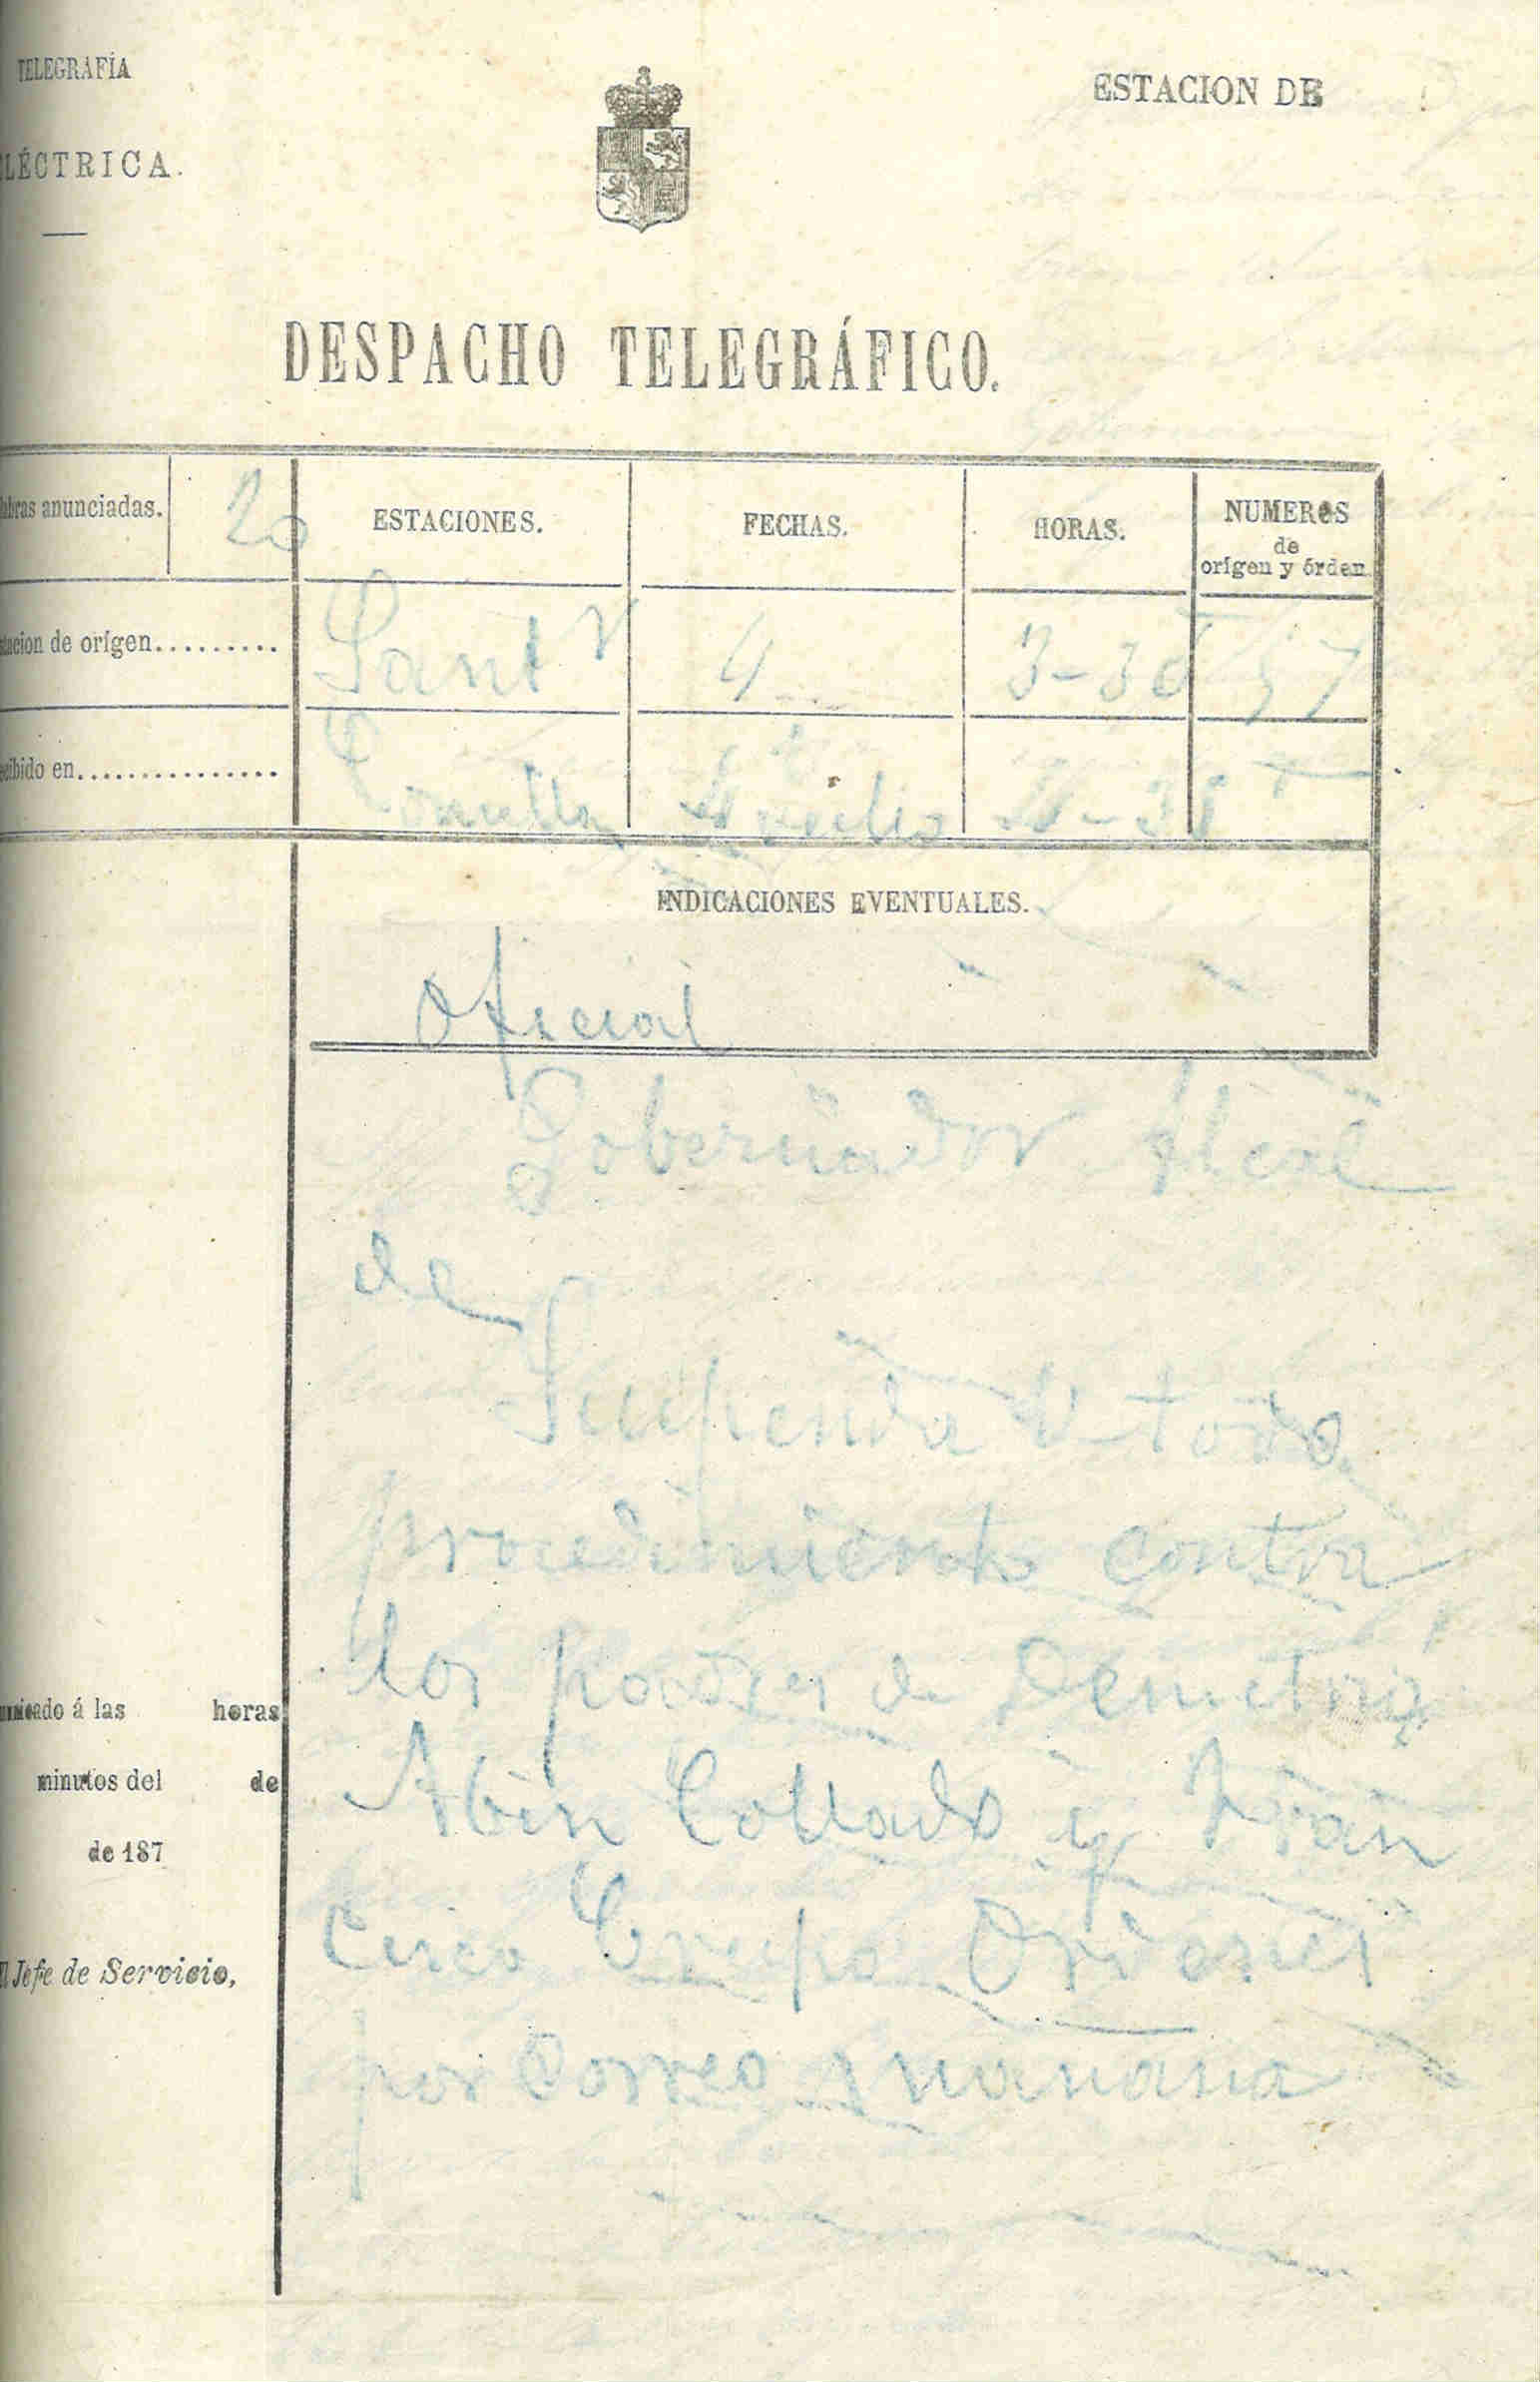 TELEGRAFÍA
ESTACION DE
LÉCTRICA.
DESPACHO TELEGRÁFICO.
bras anunciadas. 20 ESTACIONES. FECHAS. HORAS. NUMEROS
de
orígen y órden.
acion de orígen......... Sant r 4 3-30 T 57
cibido en............... 4
INDICACIONES EVENTUALES.
Oficial
Gobernador Alcal
de
Suspenda V todo
procedimiento contra
los padres de Demetrio
Abin Collado y Fran
cisco Crespo Ordenes
por Correo mañana
nicado á las horas
minutos del de
de 187
l Jefe de Servicio,